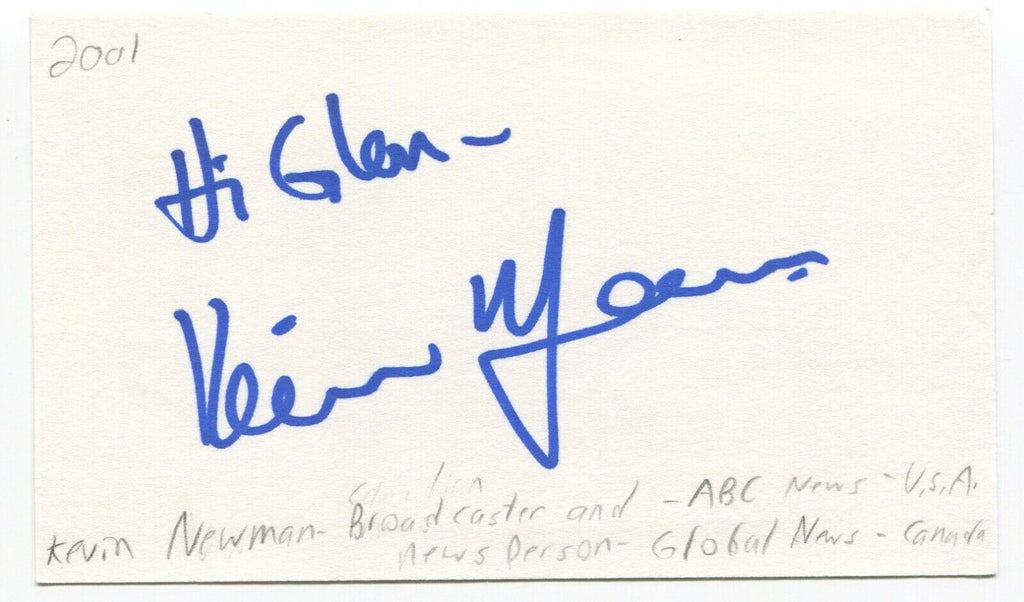 2001
Hi Glen -
Kevin
Kevin Newman - Broadcaster and - ABC News - U.S.A.
news person - Global News - Canada